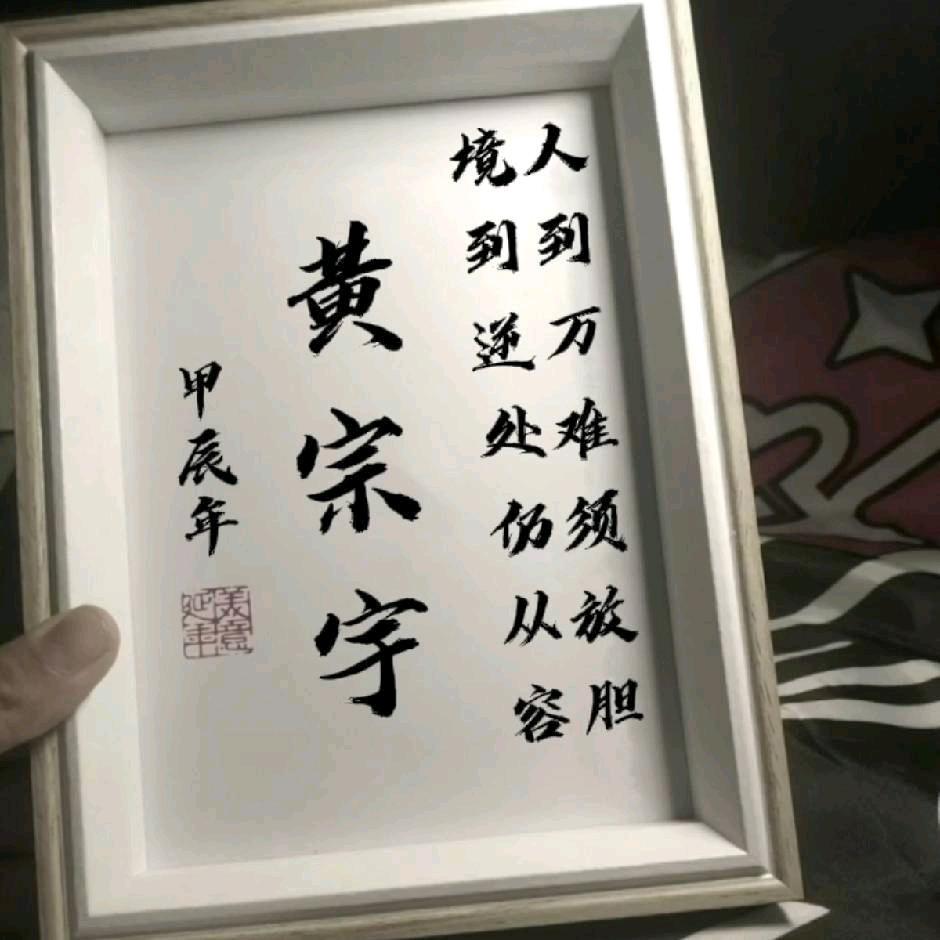 人到万难须放胆
境到逆处仍从容
黄宗宇
甲辰年
美意延年